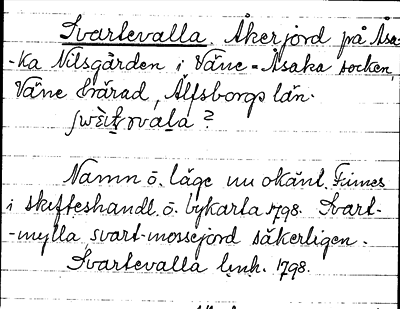 Svartevalla. Åkerjord på Åsa-
-ka Nilsgården i Väne-Åsaka socken,
Väne härad, Älfsborgs län.
?
Namn o. läge nu okänt. Finnes
i skifteshandl. o. bykarta 1798. Svart-
-mylla, svart-mossejord säkerligen.
Svartevalla l.n.h. 1798.